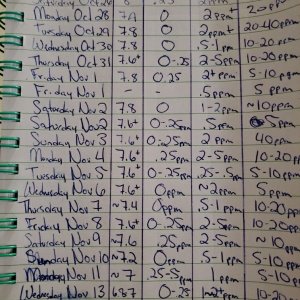 Saturday Oct 26 8
Monday Oct 28 7.8 0 2ppm 20ppm
Tuesday Oct 29 7.8 0 2ppm+ 20-40ppm
Wednesday Oct 30 7.8 0 .5-1ppm 10-20ppm
Thursday Oct 31 7.6+ 0-.25 2-5ppm 10-20ppm
Friday Nov 1 7.8 0.25 2+ ppm 5-10ppm
Friday Nov 1 - - .5ppm 5ppm
Saturday Nov 2 7.8 0 1-2ppm ~10ppm
Saturday Nov 2 7.6+ 0-.25 .5ppm 5ppm
Sunday Nov 3 7.6+ 0-.25ppm 2ppm 40ppm
Monday Nov 4 7.6+ .25ppm 2-5ppm 10-20ppm
Tuesday Nov 5 7.6+ 0-.25ppm .25-.5ppm 5-10ppm
Wednesday Nov 6 7.6+ 0ppm ~2ppm 5ppm
Thursday Nov 7 ~7.4 0ppm .5-1ppm 10-20ppm
Friday Nov 8 7.6+ 0-.25ppm 2-5ppm 10-20ppm
Saturday Nov 9 ~7.6 .25ppm 2-5ppm ~10ppm
Sunday Nov 10 ~7.2 0ppm .5-1ppm 5-10ppm
Monday Nov 11 ~7 .25-.5ppm 1ppm 5-10ppm
Wednesday Nov 13 0-.25 10-20ppm